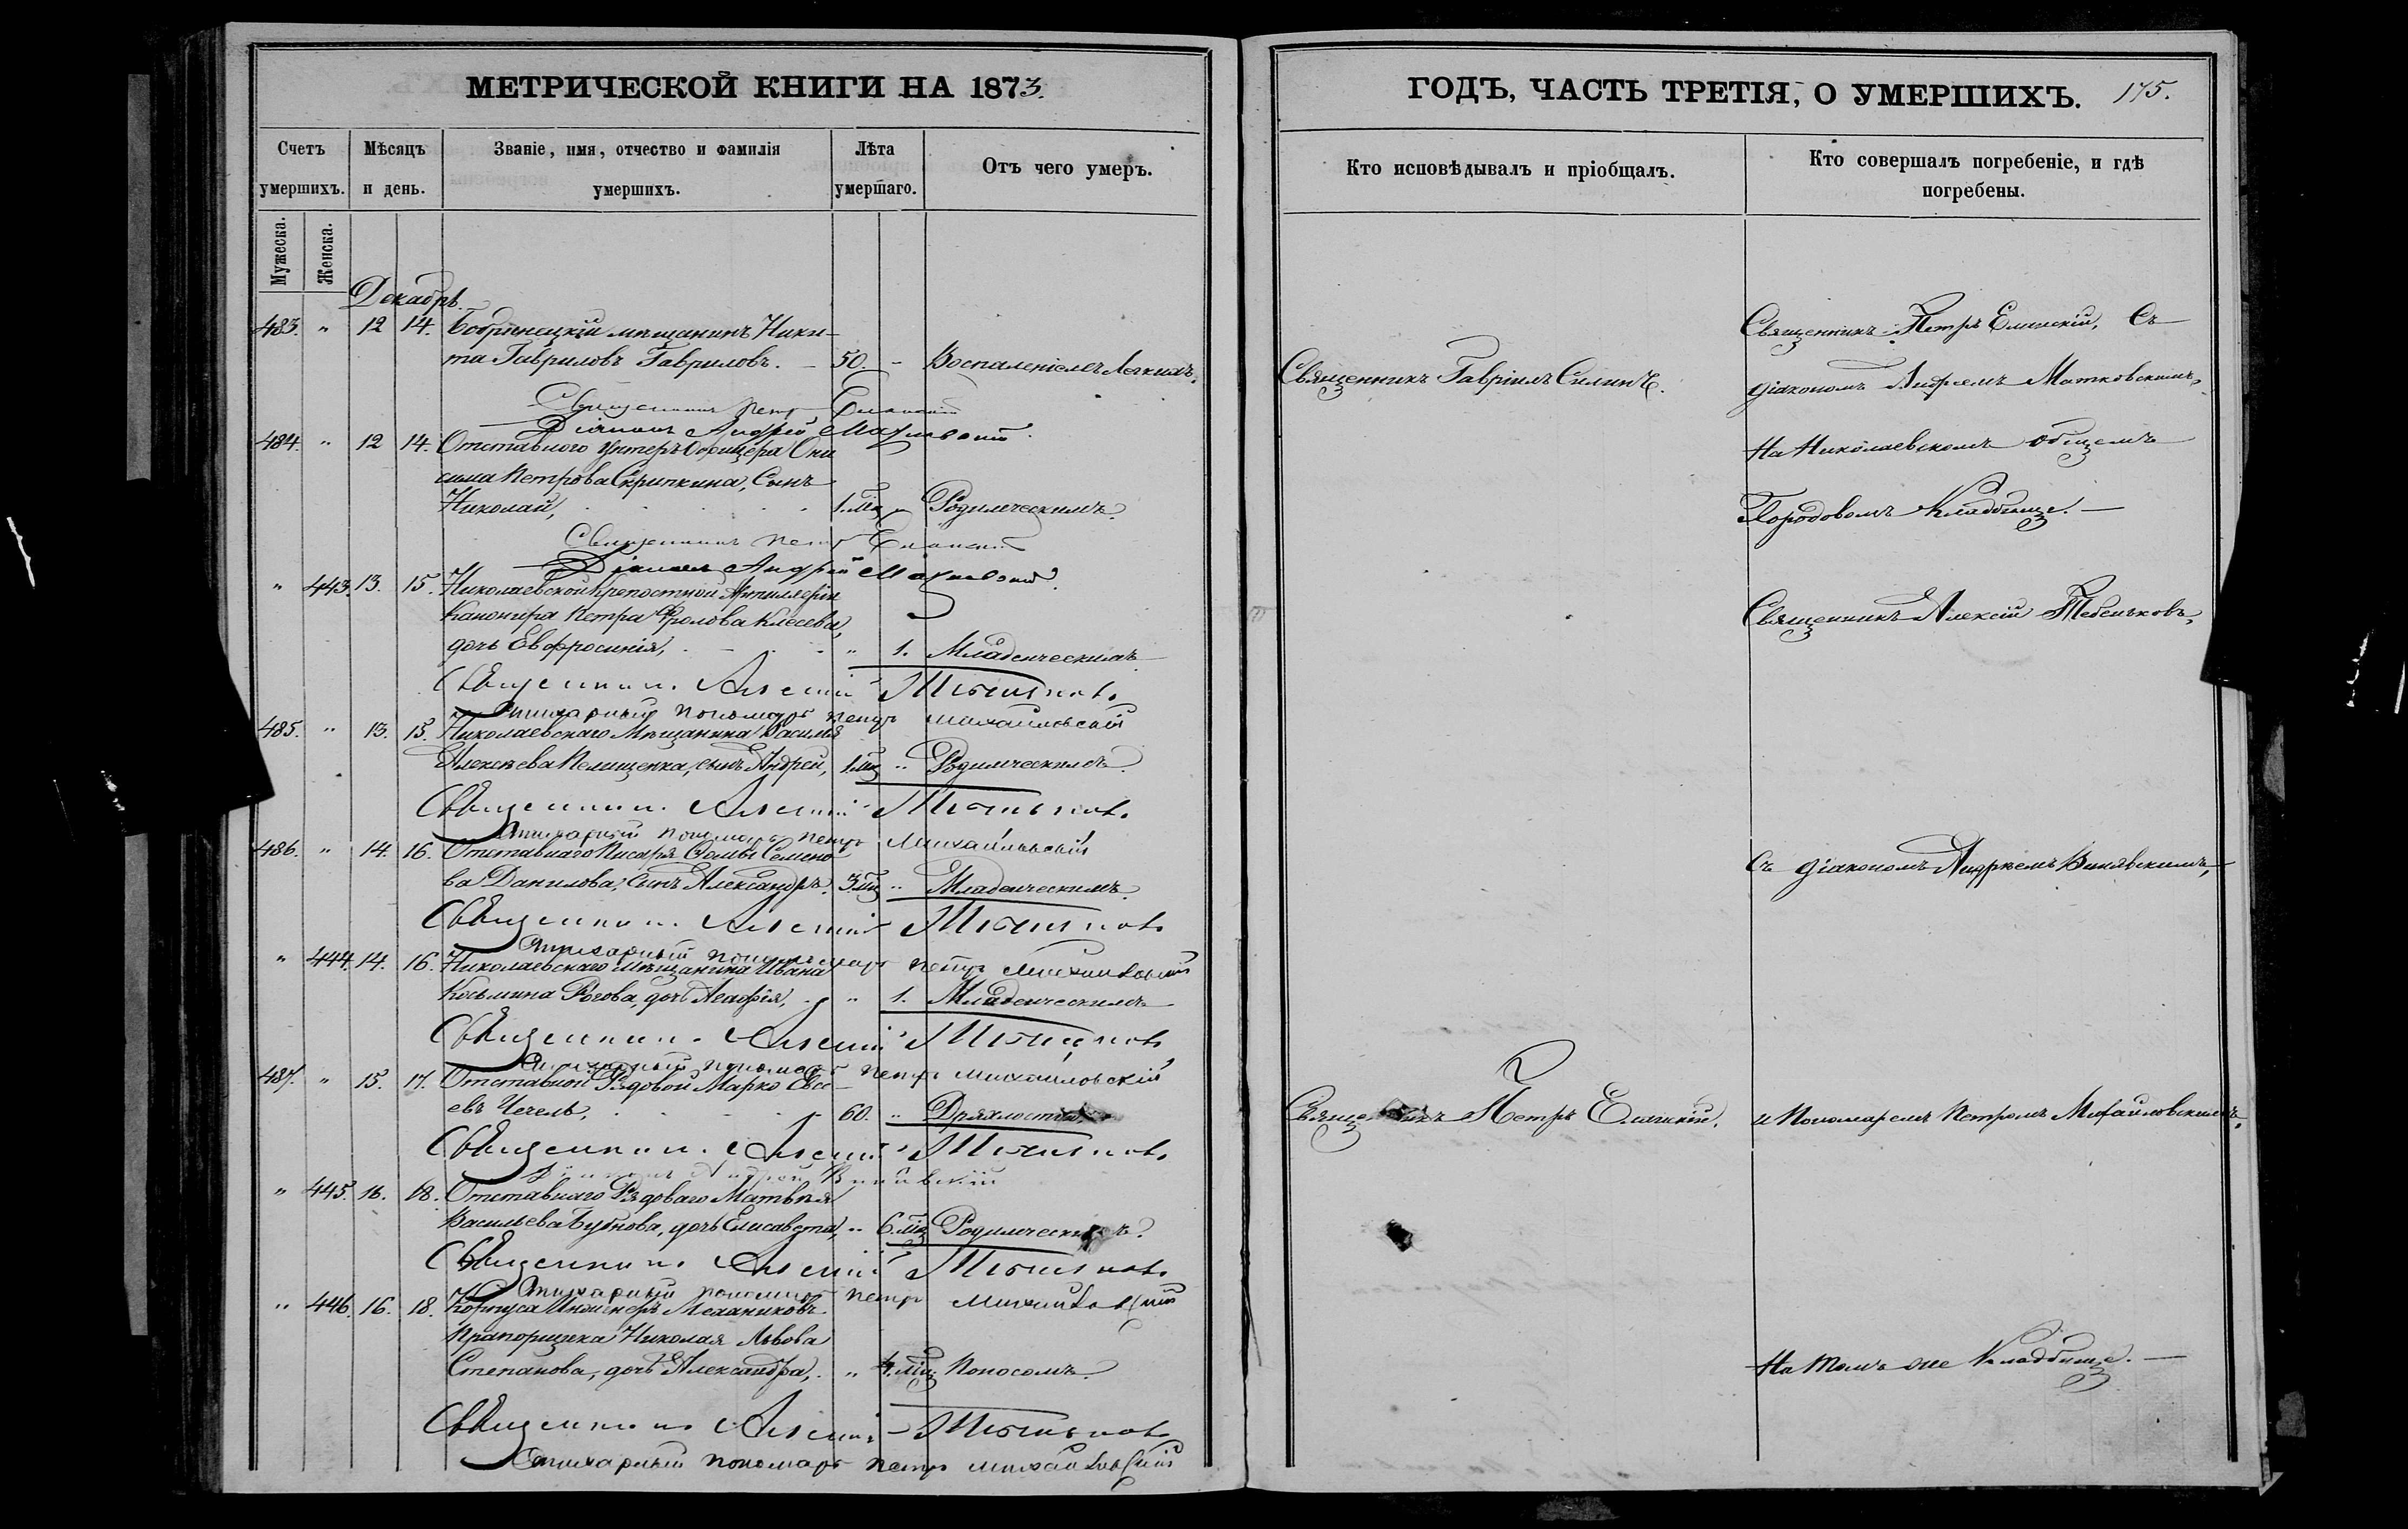 МЕТРИЧЕСКОЙ КНИГИ НА 1873.
Счетъ умершихъ.
Мѣсяцъ и день.
Званіе, имя, отчество и фамилія умершихъ.
Лѣта умершаго.
Отъ чего умеръ.
Мужеска.
Женска.
Декабрь
483. " 12 14. Бобринецкій мѣщанинъ Ники-
та Гавриловъ Гавриловъ. – 50. – Воспаленіемъ Легкихъ.
Священникъ Петръ Еланскій
Діаконъ Андрей Матковскій.
484. " 12 14. Отставного Унтеръ Офицера Они
сима Петрова Скрипкина, Сынъ
Николай, 1. мц " Родимческимъ.
Священникъ Петръ Еланскій
Діаконъ Андрей Матковскій
" 443. 13. 15. Николаевской Крѣпостной Артиллеріи
Канонира Петра Фролова
дочь Евфросинія, " 1. Младенческимъ
Священникъ Алексій
Стихарный пономарь Петръ Михайловскій
485. " 13. 15. Николаевскаго Мѣщанина Василія
Алексѣева сынъ Андрей, 1 мц " Родимческимъ.
Священникъ Алексій
Стихарный пономарь Петръ Михайловскій
486. " 14. 16. Отставнаго Писаря Ѳомы Семено
ва Данилова, сынъ Александръ. 3 мц " Младенческимъ.
Священникъ Алексій
Стихарный пономарь Петръ Михайловскій
" 444. 14. 16. Николаевскаго Мѣщанина Ивана
Косьмина Рогова, дочь Агафія, " 1. Младенческимъ
Священникъ Алексій
Стихарный пономарь Петръ Михайловскій
487. " 15. 17. Отставной Рядовой Марко Евсе-
евъ Чечель, 60. " Дряхлостію.
Священникъ Алексій
Діаконъ Андрей
" 445. 16. 18. Отставнаго Рядоваго Матвѣя
Васильева Бубнова, дочь Елисавета, " 6. мц Родимческимъ.
Священникъ Алексій
Стихарный пономарь Петръ Михайловскій
" 446. 16. 18. Корпуса Инженеръ Механиковъ
Прапорщика Николая Львова
Степанова, дочь Александра, " 4. мц Поносомъ.
Священникъ Алексій
Стихарный пономарь Петръ Михайловскій
ГОДЪ, ЧАСТЬ ТРЕТІЯ, О УМЕРШИХЪ. 175.
Кто исповѣдывалъ и пріобщалъ.
Кто совершалъ погребеніе, и гдѣ
погребены.
Священникъ Гавріилъ Силинъ.
Священникъ Петръ Еланскій.
Священникъ Петръ Еланскій, Съ
діакономъ Андреемъ Матковскимъ,
На Николаевскомъ общемъ
Городовомъ Кладбище. –
Священникъ Алексій
съ діакономъ Андреемъ
и Пономаремъ Петромъ Михайловскимъ,
На томъ же Кладбище. –